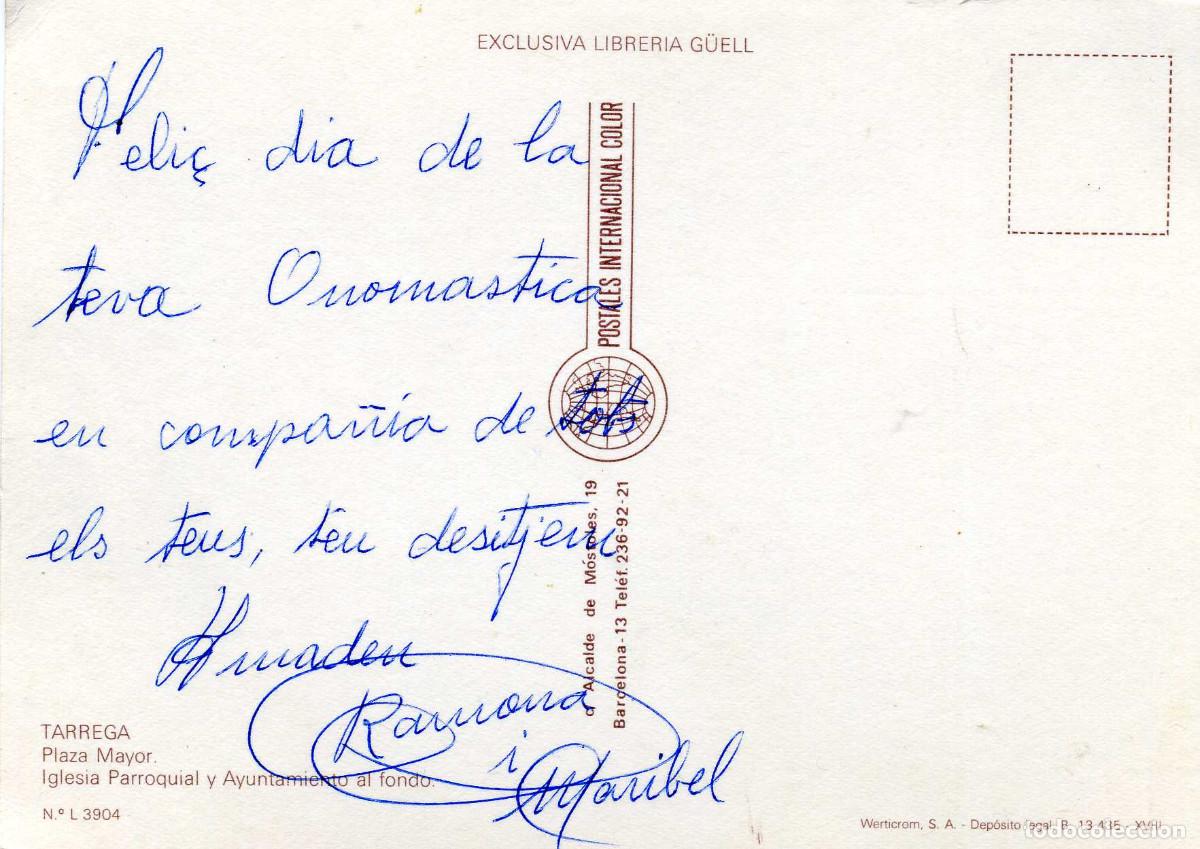 EXCLUSIVA LIBRERIA GÜELL
Feliç dia de la
teva Onomastica
en compañia de tots
els teus, teu desitjem
Amadeu
Ramona
i Maribel
POSTALES INTERNACIONAL COLOR
c/ Alcalde de Móstoles, 19
Barcelona-13 Teléf. 236-92-21
TARREGA
Plaza Mayor.
Iglesia Parroquial y Ayuntamiento al fondo.
N.º L 3904
Werticrom, S. A. - Depósito legal B. 13.435 - XVIII
todocoleccion